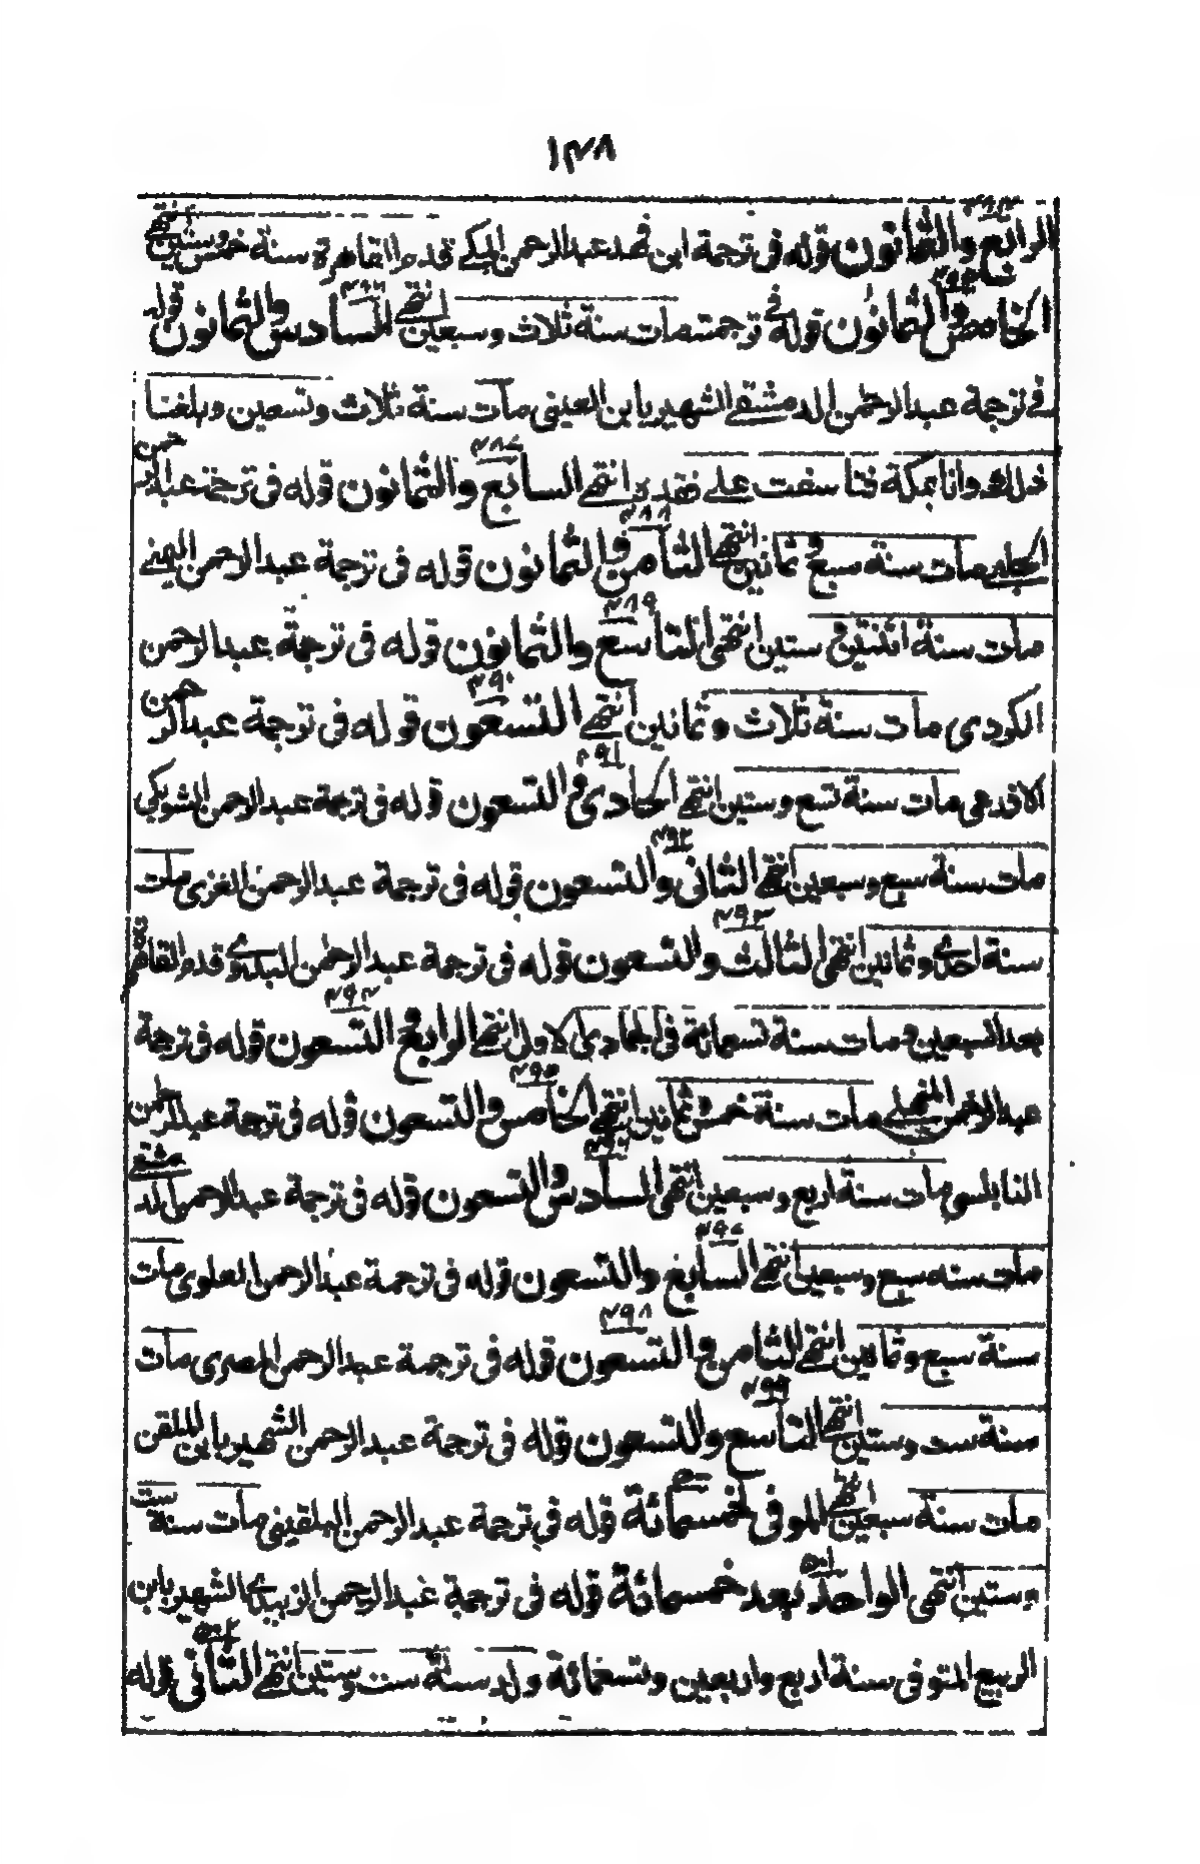 ١٣٨
الرابع والثمانون قوله فى ترجمة ابن فهد عبد الرحمن المكى قدم القاهرة سنة خمس وستين انتهى
الخامس والثمانون قوله فى ترجمته مات سنة ثلاث وسبعين انتهى السادس والثمانون قوله
فى ترجمة عبد الرحمن الدمشقى الشهير بابن العينى مات سنة ثلاث وتسعين وبلغنا
ذلك وانا بمكة فتاسفت على فقده انتهى السابع والثمانون قوله فى ترجمة عبد الرحمن
مات سنة سبع وثمانين انتهى الثامن والثمانون قوله فى ترجمة عبد الرحمن
مات سنة اثنتين وستين انتهى التاسع والثمانون قوله فى ترجمة عبد الرحمن
الكردى مات سنة ثلاث وثمانين انتهى التسعون قوله فى ترجمة عبد الرحمن
مات سنة تسع وستين انتهى الحادى والتسعون قوله فى ترجمة عبد الرحمن الشوبكى
مات سنة سبع وسبعين انتهى الثانى والتسعون قوله فى ترجمة عبد الرحمن الغزى مات
سنة احدى وثمانين انتهى الثالث والتسعون قوله فى ترجمة عبد الرحمن قدم القاهرة
بعد السبعين ومات سنة تسعمائة فى الجمادى الاولى انتهى الرابع والتسعون قوله فى ترجمة
عبد الرحمن مات سنة خمس وثمانين انتهى الخامس والتسعون قوله فى ترجمة عبد الرحمن
النابلسى مات سنة اربع وسبعين انتهى السادس والتسعون قوله فى ترجمة عبد الرحمن الدمشقى
مات سنه سبع وسبعين انتهى السابع والتسعون قوله فى ترجمة عبد الرحمن العلوى مات
سنة سبع وثمانين انتهى الثامن والتسعون قوله فى ترجمة عبد الرحمن المصرى مات
سنة ست وستين انتهى التاسع والتسعون قوله فى ترجمة عبد الرحمن الشهير بابن الملقن
مات سنة سبعين انتهى الموفى خمسمائة قوله فى ترجمة عبد الرحمن البلقينى مات سنة ست
وستين انتهى الواحد بعد خمسمائة قوله فى ترجمة عبد الرحمن الزبيدى الشهير بابن
الربيع المتوفى سنة اربع واربعين وتسعمائة ولد سنة ست وستين انتهى الثانى قوله